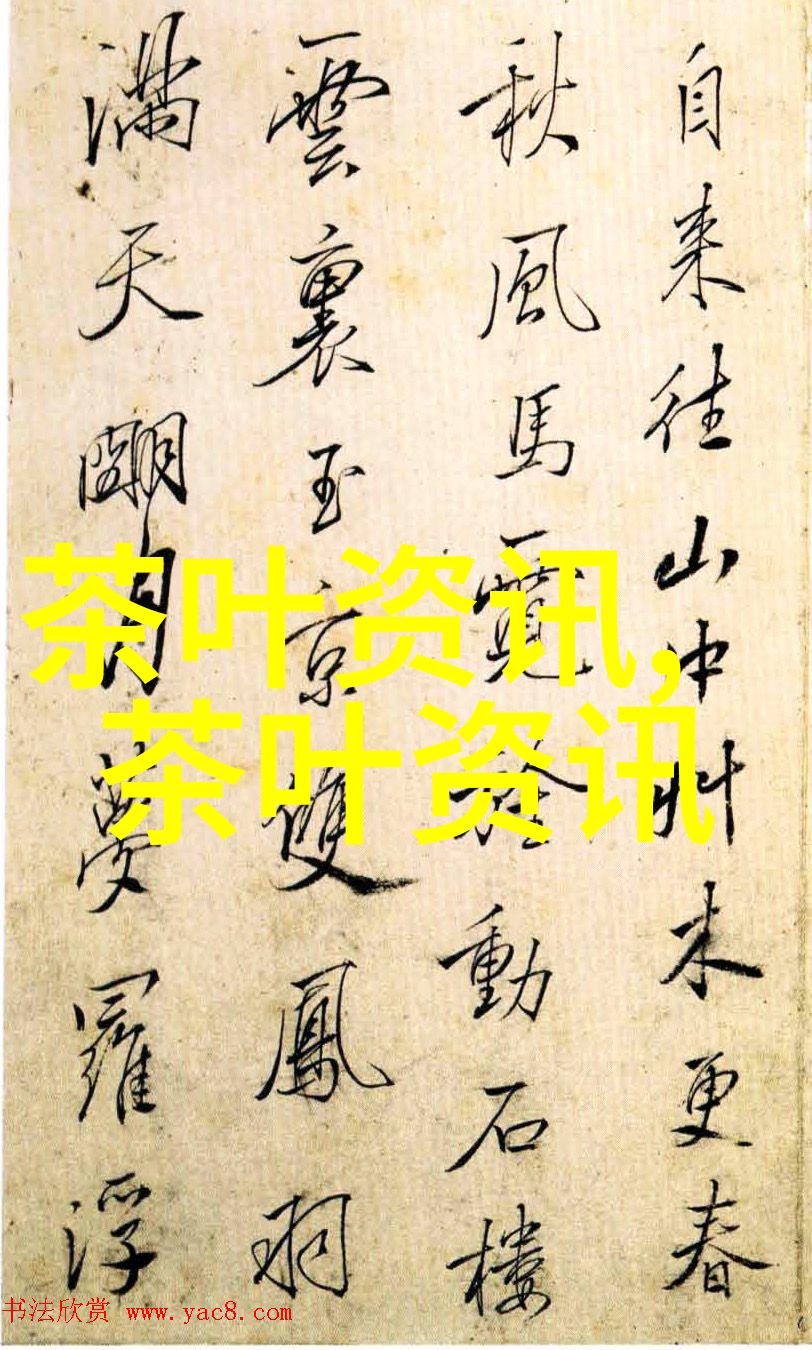 自来往山中艸木更春
秋風馬動石樓
雲裏玉京雙鳳
滿天月夢羅浮
茶叶资讯,
茶叶资讯
书法欣赏 www.yac8.com